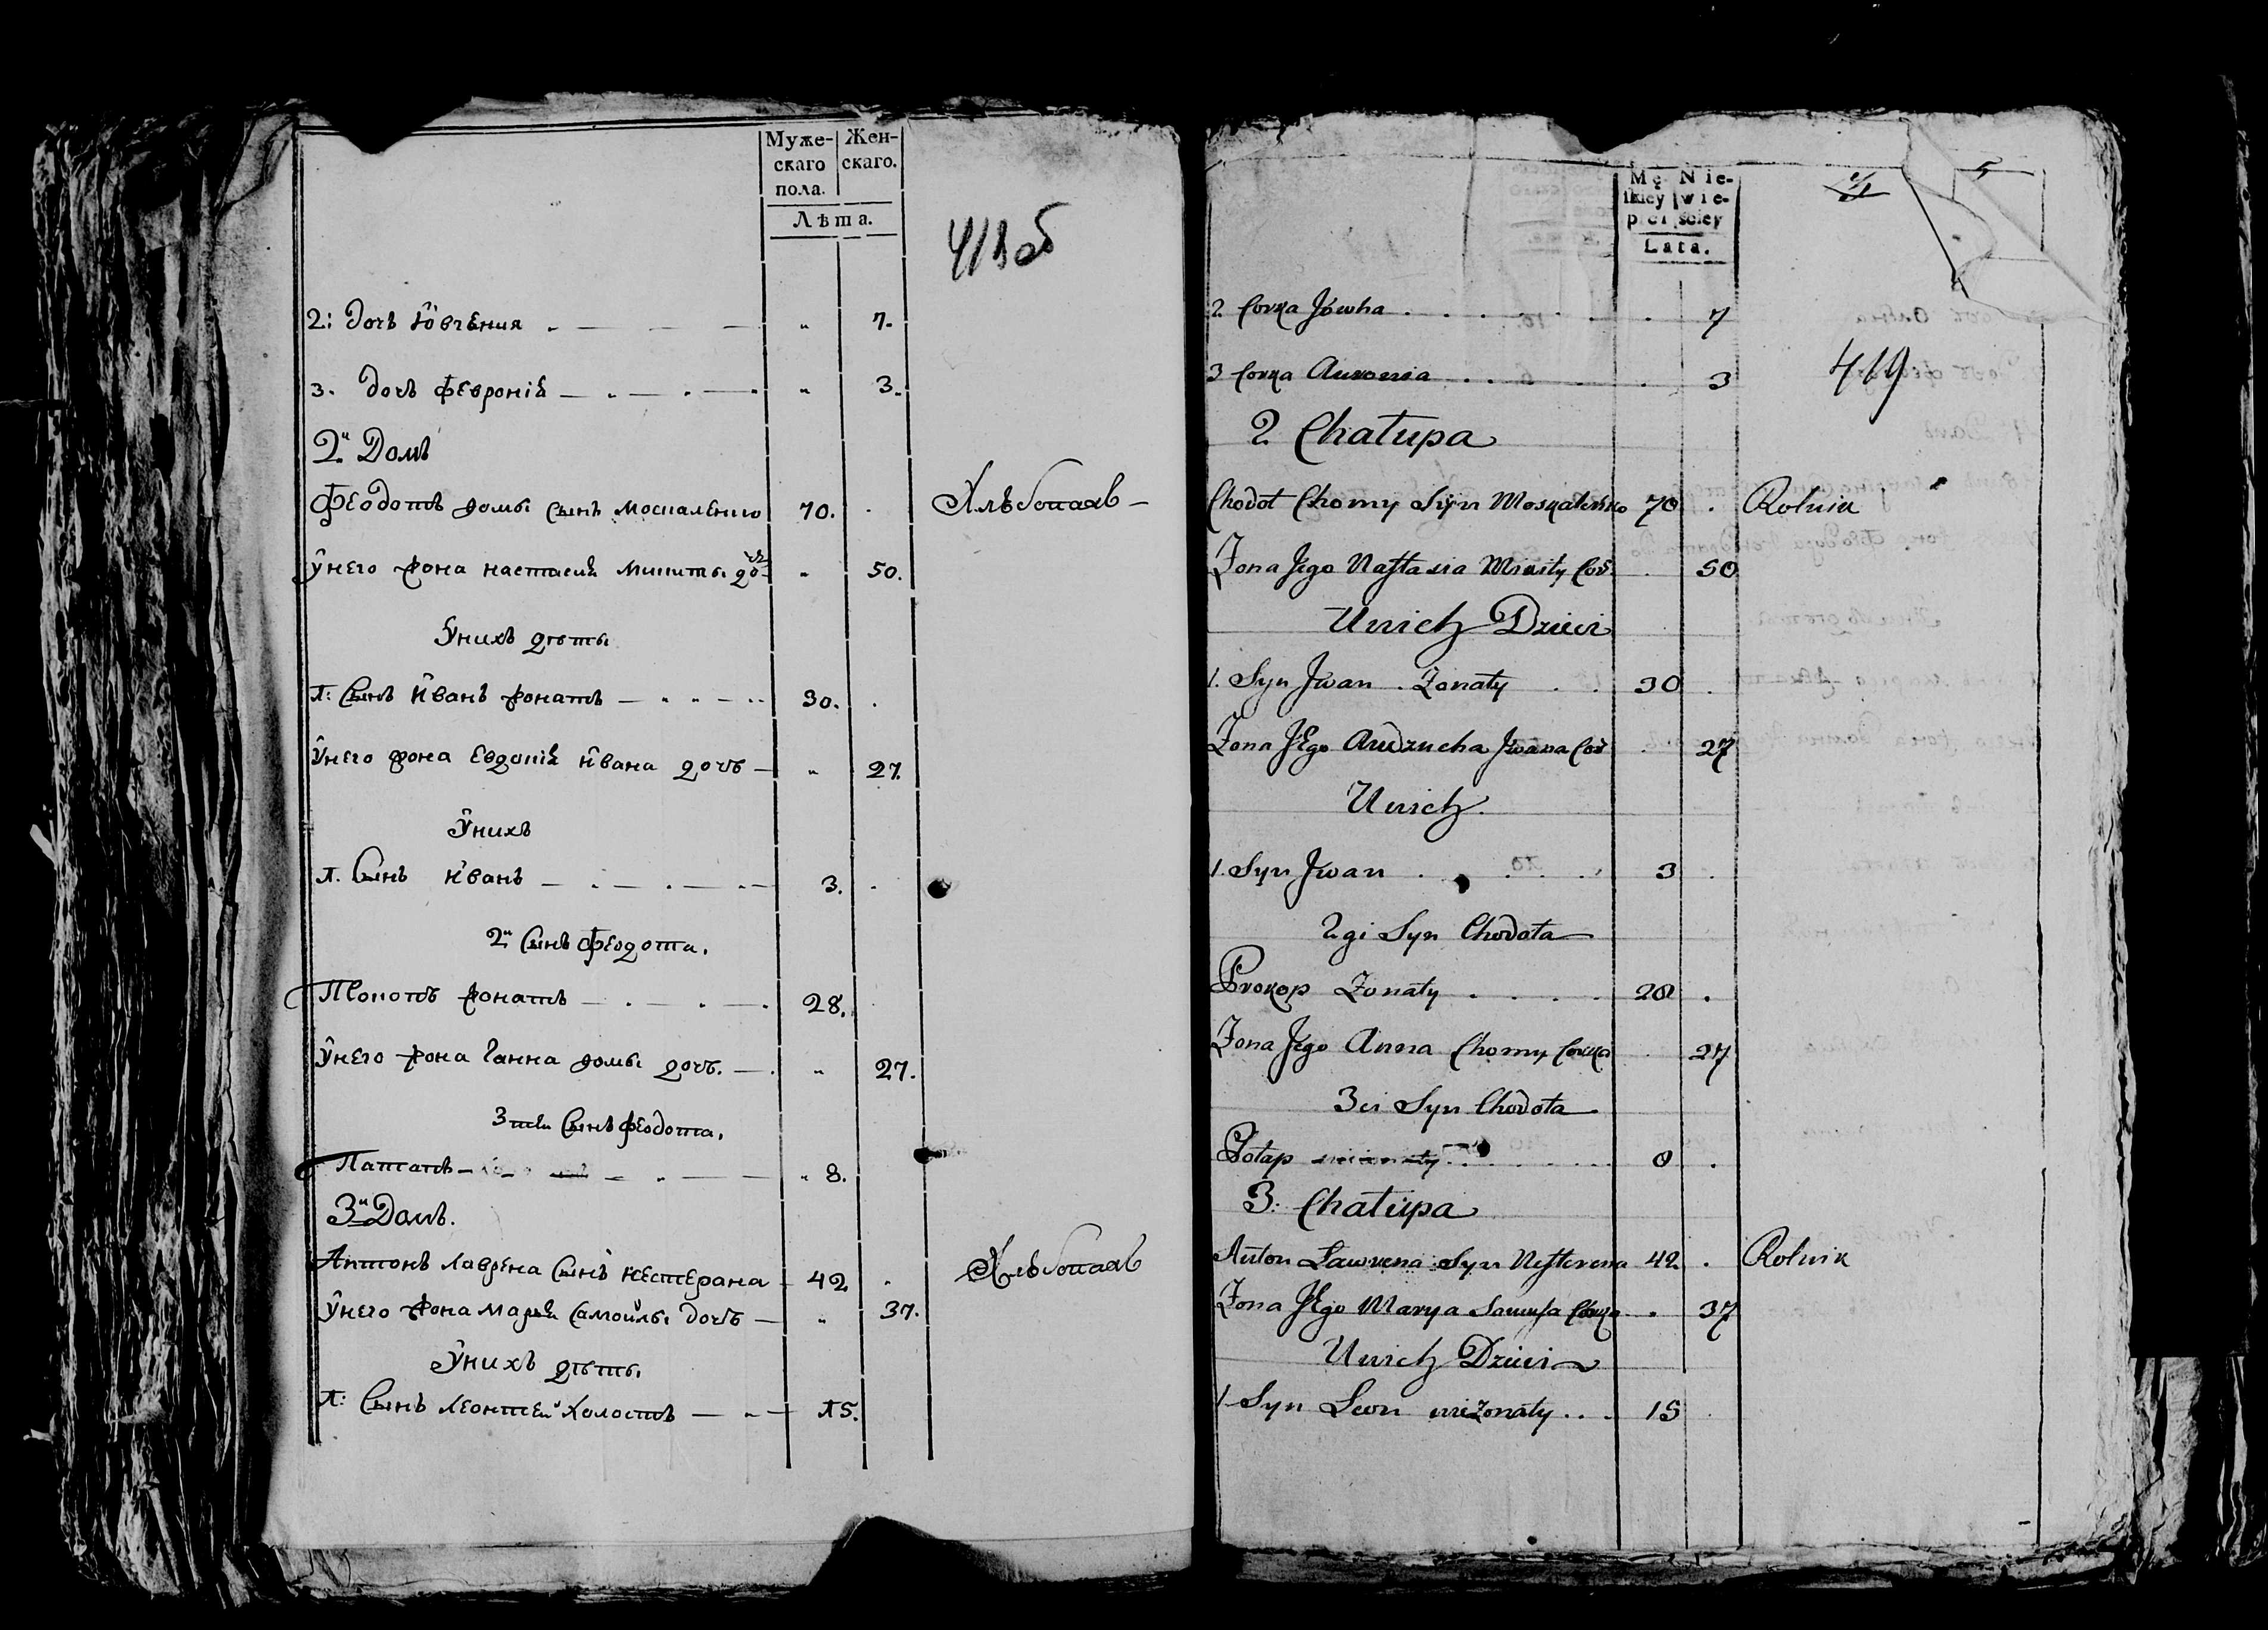 Муже-
скаго
пола.
Жен-
скаго.
Лѣта.
418 об
2: дочь Ювгения " 7.
3. дочь Феврония " 3.
2й Домъ
Феодотъ Ѳомы сынъ Москаленко 70. Хлѣбопашъ
Унего жона настасия Микиты дочь " 50.
Унихъ дѣти
1: Сынъ Иванъ жонатъ 30.
Унего жона Евдокия Ивана дочь " 27.
Унихъ
1. Сынъ Иванъ 3.
2й Сынъ Феодота.
жонатъ 28.
Унего жона Ганна Ѳомы дочь. " 27.
3тей Сынъ Феодота.
Патапъ 8.
3й Домъ.
Антонъ Лаврена Сынъ Нестерена 42 Хлѣбопашъ
Унего жона Марья Самойлы дочь " 37.
Унихъ дѣти.
1: Сынъ Леонтей Холостъ 15.
Mę-
skiey
płci
Nie-
wie-
sciey
Lata.
5
419
2 Corka Jowha 7
3 Corka 3
2 Chałupa
Chodot Chomy Syn Moskalenko 70 Rolnik
Zona Jego Nastasia Mikity Cor. 50
Unich Dzieci
1. Syn Jwan Zonaty 30
Zona JEgo Audzucha Jwana Cor 27
Unich
1. Syn Jwan 3
2gi Syn Chodota
Prokop Zonaty 28
Zona Jego Anna Chomy Corka 27
3ci Syn Chodota
Potap 8
3: Chałupa
Anton Ławrena Syn Nesterena 42 Rolnik
Zona JEgo Marya Samuyła Corka 37
Unich Dzieci
1 Syn Leon niezonaty 15